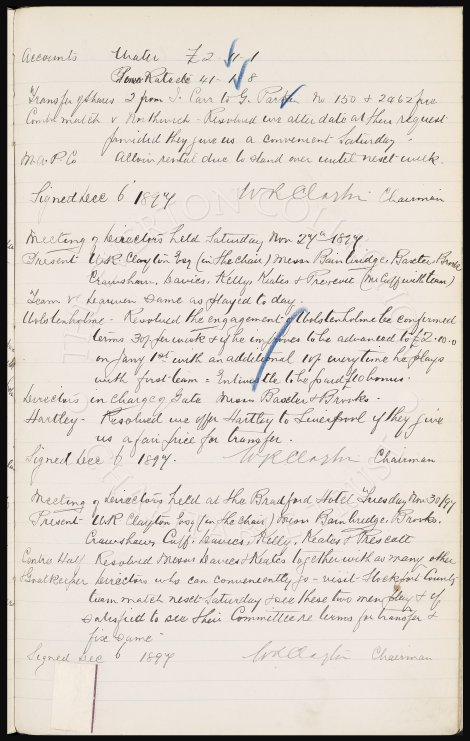 Accounts Water £2 11 1
Poor Rates &c 41 - 1 8
Transfer of Shares 2 from J. Carr to G. No 150 & 2962 free
Combn match v Northwich - Resolved we alter date at their request
provided they give us a convenient Saturday.
M.A.P. Co Allow rental due to stand over until next week.
Signed Dec 6 1897 W R Clayton Chairman
Meeting of Directors held Saturday Nov 27th 1897.
Present W R Clayton Esq (in the chair) Messrs Bainbridge, Baxter, Brooks
Crawshaw, Davies, Kelly, Keates & (Mr Cuff with team)
Team v Leavesn Same as played to day.
Wolstenholme - Resolved the engagement of Wolstenholme be confirmed
terms 30/- per week & if he improves to be advanced to £2-10-0
on Jany 1st with an additional 10/- everytime he plays
with first team = Entwistle to be paid £10 bonus.
Directors in charge of Gate Messrs Baxter & Brooks.
Hartley - Resolved we offer Hartley to Liverpool if they give
us a fair price for transfer.
Signed Dec 6 1897. W R Clayton Chairman
Meeting of Directors held at the Bradford Hotel Tuesday Nov 30/97
Present W R Clayton Esq (in the chair) Messrs Bainbridge, Brooks.
Crawshaw, Cuff, Davies, Kelly, Keates & Prescott
Centre Half Resolved Messrs Davies & Keates together with as many other
& Goalkeeper Directors who can conveniently go - visit Stockport County
team match next Saturday & see these two men play & if
satisfied to see their Committee re terms for transfer &
fix same
Signed Dec 6 1897 W R Clayton Chairman